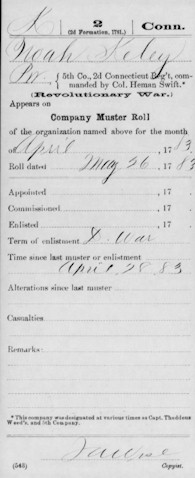 K | 2 | Conn.
(2d Formation, 1781.)
Noah Keley
Pvt. { 5th Co., 2d Connecticut Reg't, com-
manded by Col. Heman Swift.*
(Revolutionary War.)
Appears on
Company Muster Roll
of the organization named above for the month
of April, 1783.
Roll dated May 26, 1783.
Appointed , 17 .
Commissioned , 17 .
Enlisted , 17 .
Term of enlistment D. War
Time since last muster or enlistment
April 28 83
Alterations since last muster
Casualties
Remarks:
*This company was designated at various times as Capt. Thaddeus
Weed's, and 5th Company.
(545) Copyist.